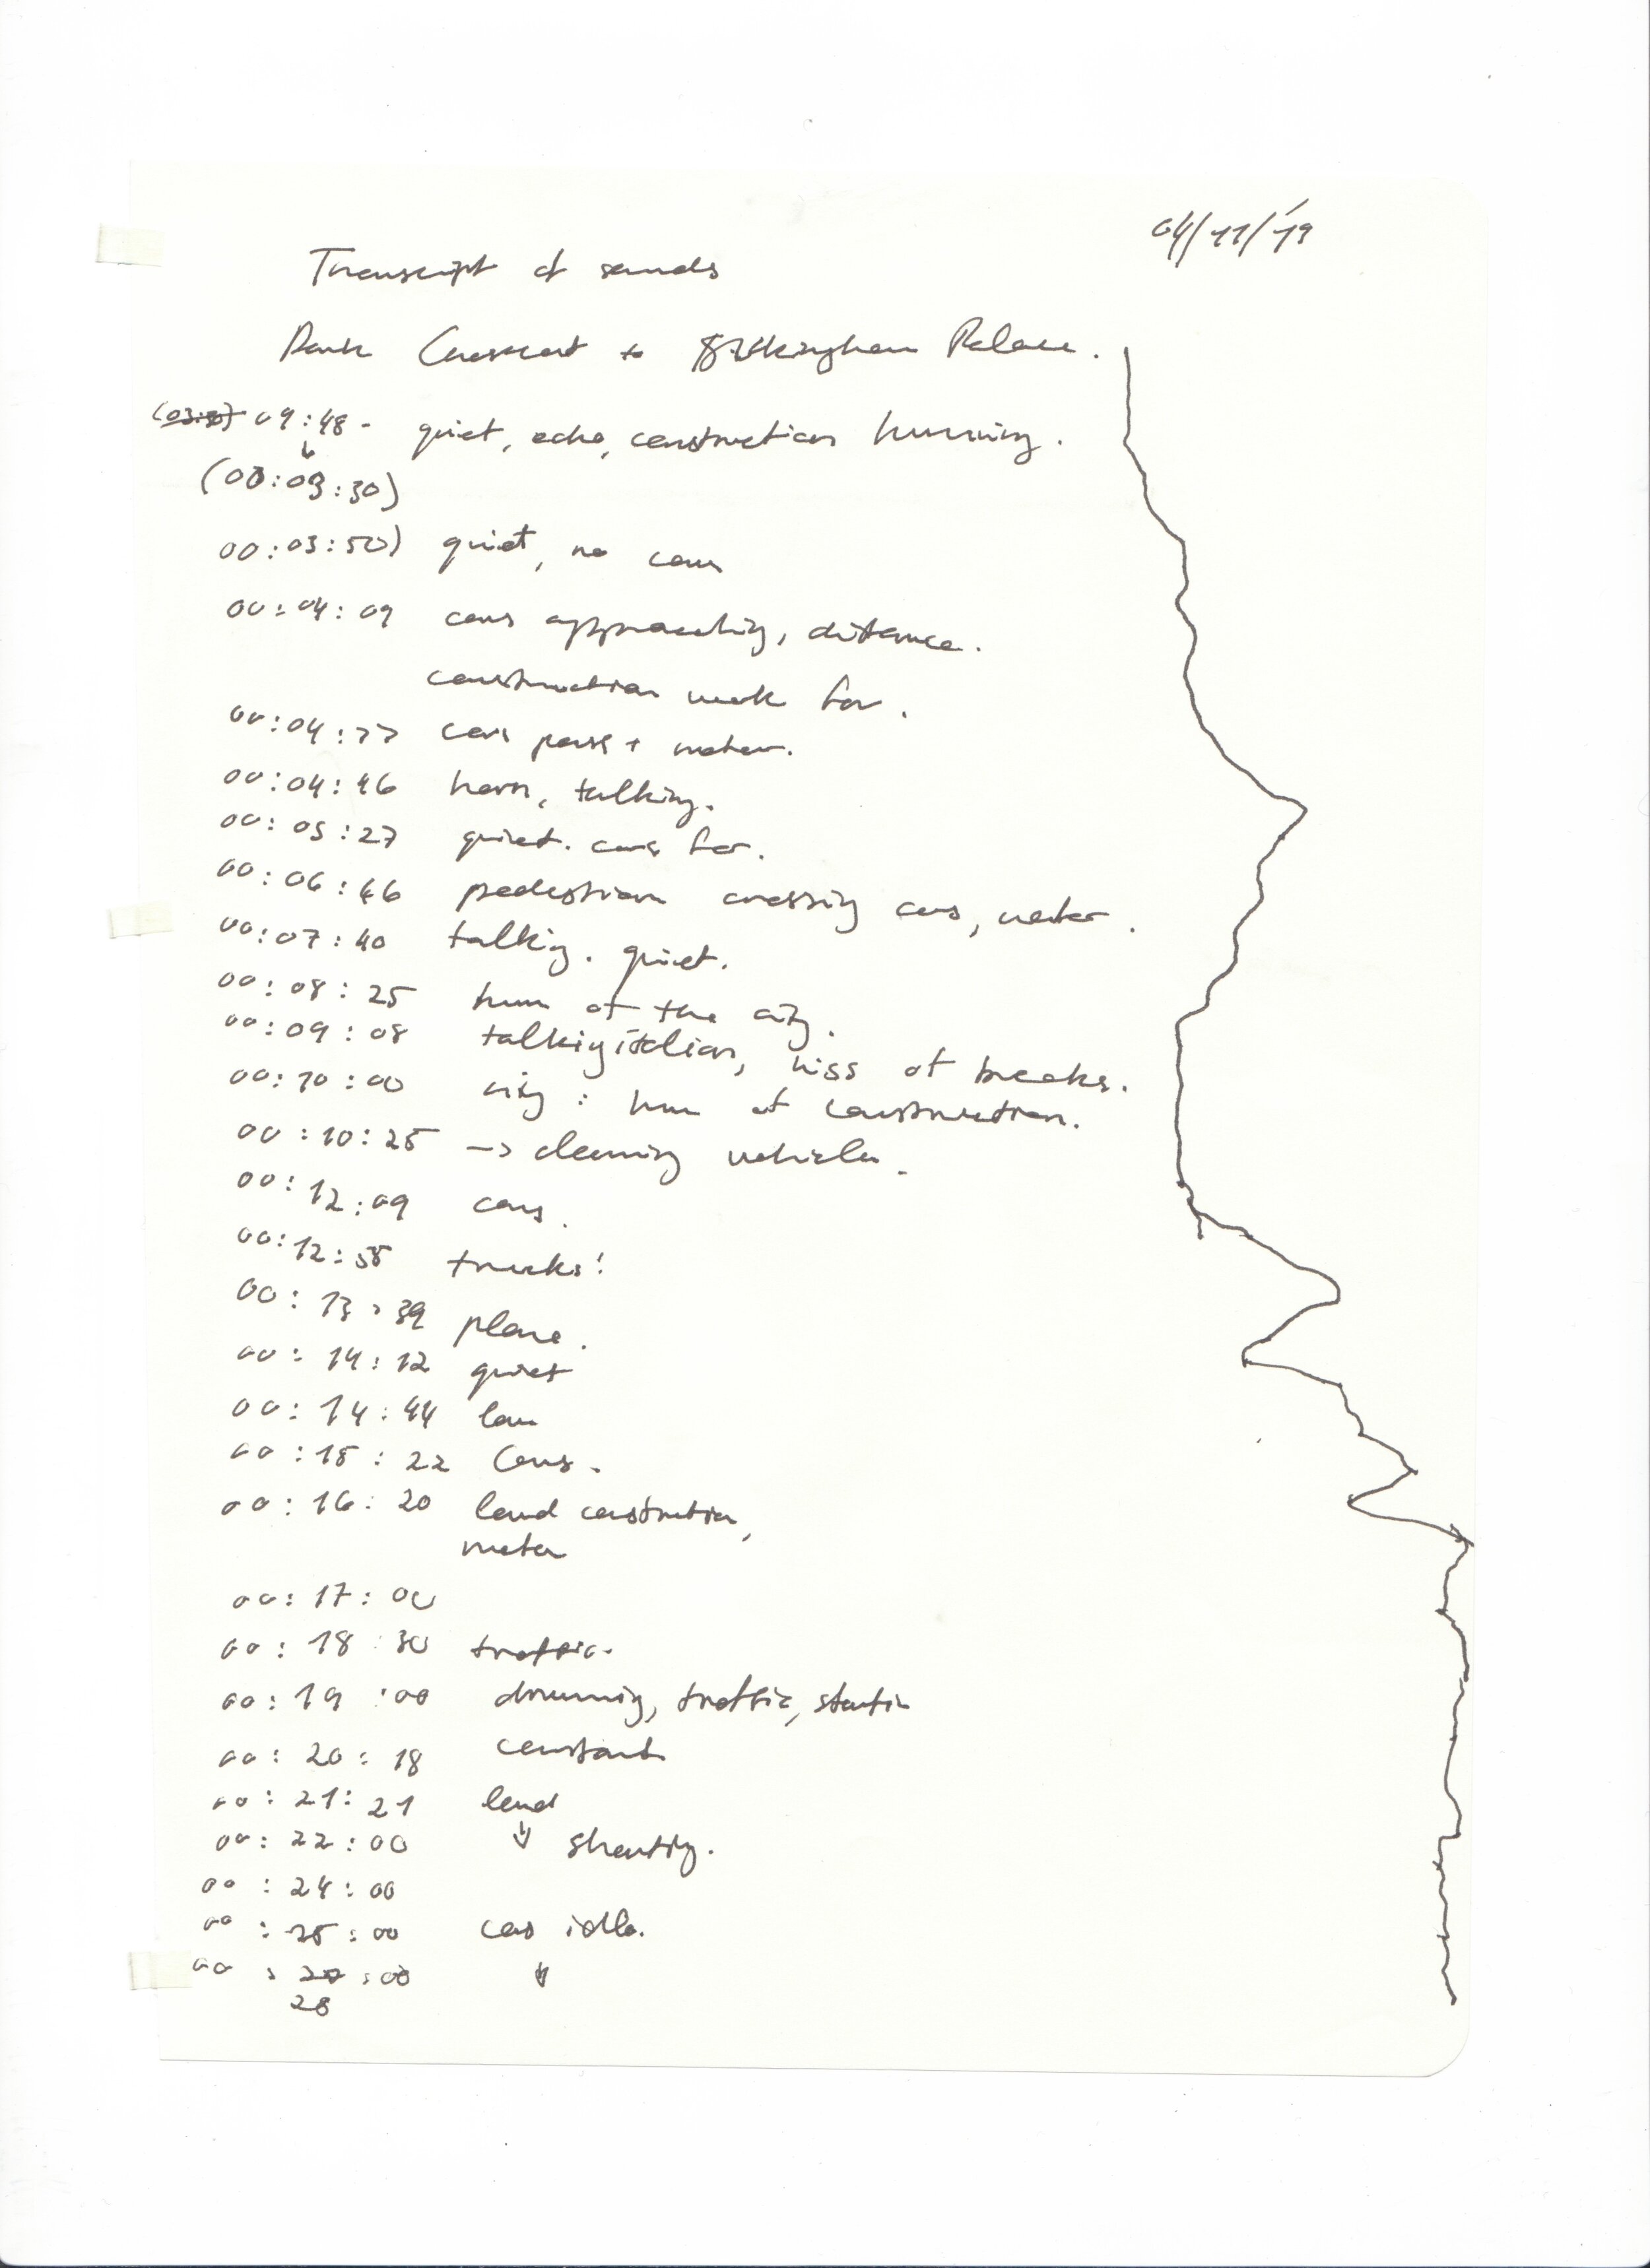 04/11/'19
Transcript of sounds
Park Crescent to Buckingham Palace.
09:48 - quiet, echo, construction humming.
(00:03:30)
00:03:50) quiet, no cars
00:04:09 cars approaching, distance.
construction work far.
00:04:77 cars pass + motor.
00:04:46 horn, talking.
00:05:27 quiet. cars far.
00:06:46 pedestrian crossing cars, motor.
00:07:40 talkig. quiet.
00:08:25 hum of the city.
00:09:08 talkig italian, hiss of breaks.
00:10:00 city: hum of construction.
00:10:25 -> cleaning vehicle.
00:12:09 cars.
00:12:58 trucks!
00:13:39 plane.
00:14:12 quiet
00:14:44 low
00:15:22 Cars.
00:16:20 loud constrution,
motor
00:17:00
00:18:30 traffic.
00:19:00 drumming, traffic, static
00:20:18 constant
00:21:21 loud
00:22:00 ↓ shoutig.
00:24:00
00:25:00 cars idle.
00:27:00 ↓
28